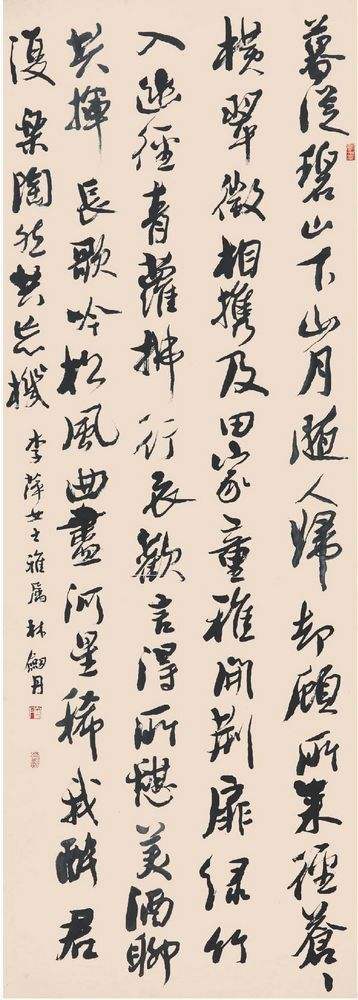 暮從碧山下山月隨人歸却顧所來徑蒼〻
橫翠微相携及田家童稚開荆扉綠竹
入幽徑青蘿拂行衣歡言得所憩美酒聊
共揮長歌吟松風曲盡河星稀我醉君
復樂陶然共忘機 李萍女士雅屬 林劍丹